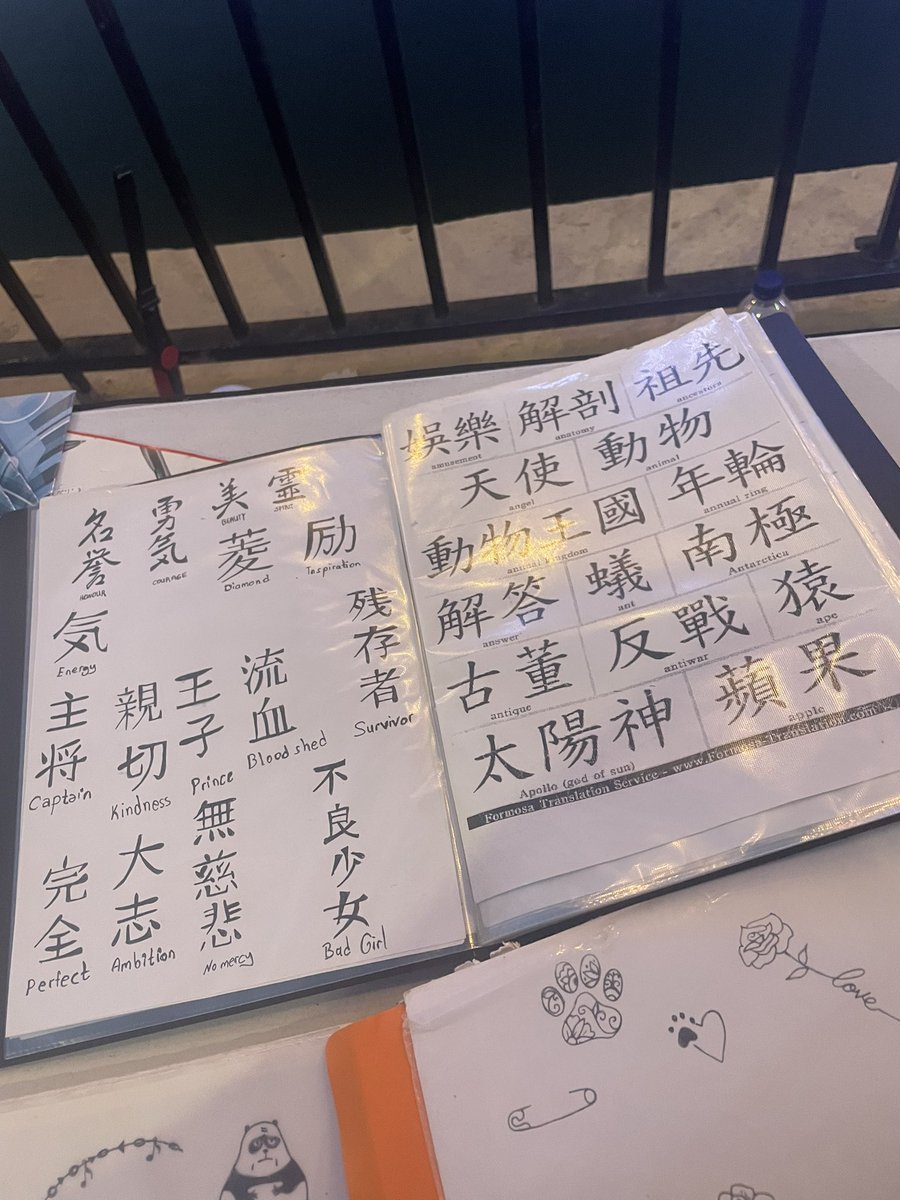 名誉
HONOUR
勇気
COURAGE
美
BEAUTY
霊
SPIRIT
菱
Diamond
励
Inspiration
気
Energy
残存者
Survivor
主将
Captain
親切
Kindness
王子
Prince
流血
Bloodshed
完全
Perfect
大志
Ambition
無慈悲
No mercy
不良少女
Bad Girl
娯樂
amusement
解剖
anatomy
祖先
ancestors
天使
angel
動物
animal
動物王國
animal kingdom
年輪
annual ring
解答
answer
蟻
ant
南極
Antarctica
古董
antique
反戰
antiwar
猿
ape
太陽神
Apollo (god of sun)
蘋果
apple
Formosa Translation Service - www.Formosa-Translation.com
love